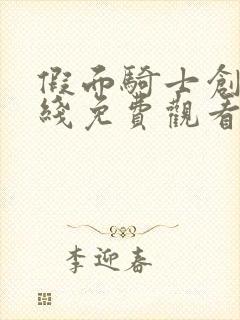 假面騎士創
綫免費觀看
李迎春